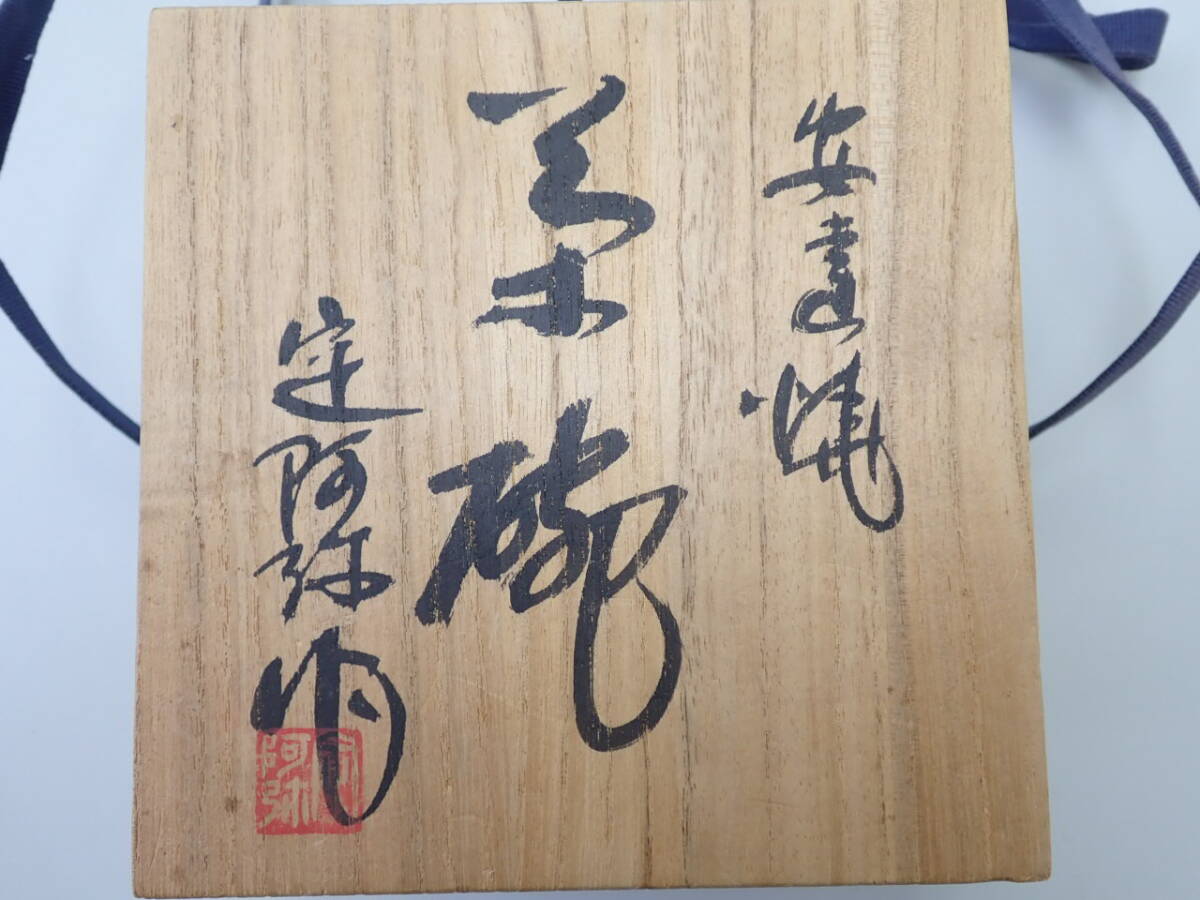 安達焼
茶碗
定阿弥作
定阿弥